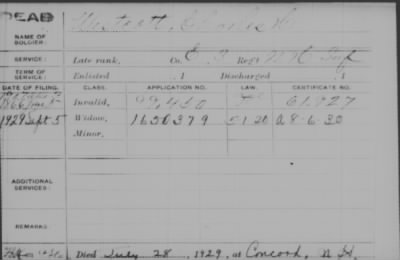 DEAD
NAME OF SOLDIER: Westcott, Charles W.
SERVICE: Late rank, Co. E, 3 Reg't N H Inf
TERM OF SERVICE: Enlisted , 1 Discharged , 1
DATE OF FILING. CLASS. APPLICATION NO. LAW. CERTIFICATE NO.
1866 5 Invalid, 99,450 61,927
1929 Sept 5 Widow, 1650379 5-1-20 A 8-6-30
Minor,
ADDITIONAL SERVICES:
REMARKS:
Died July 28, 1929, at Concord, N H.